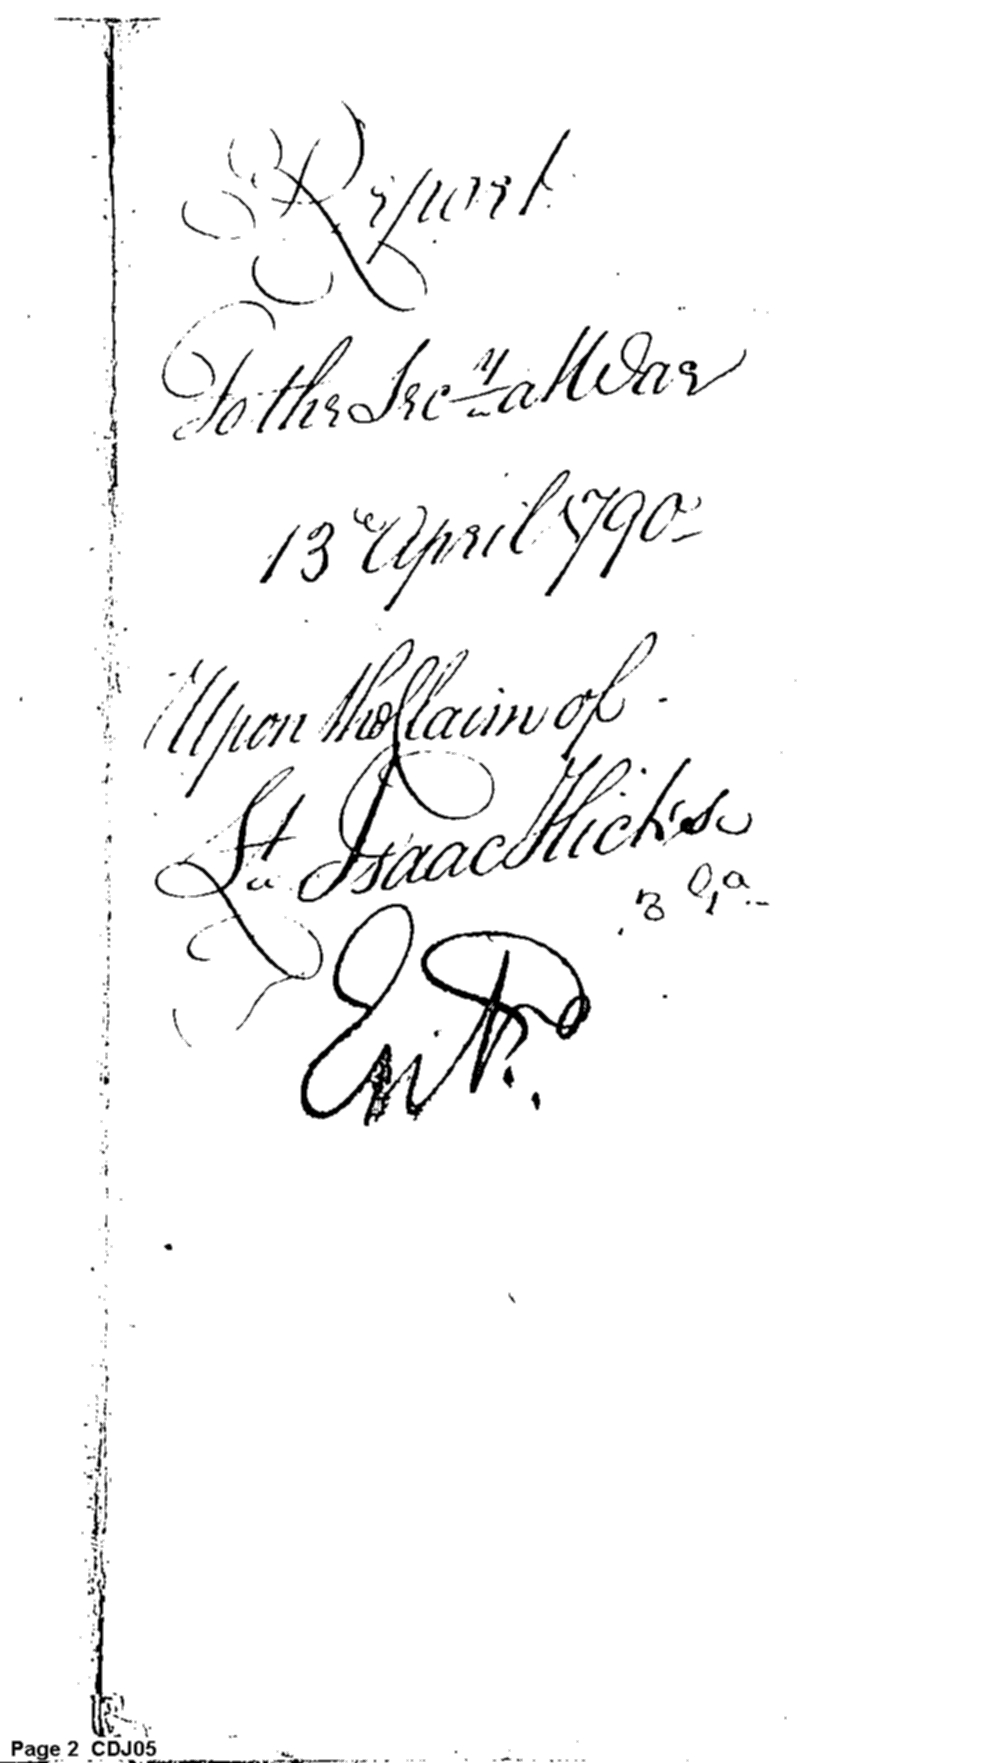 Report
To the Secy at War
13 April 1790
Upon the Claim of
Lt Isaac Hicks
3 Ga
Page 2 CDJ05